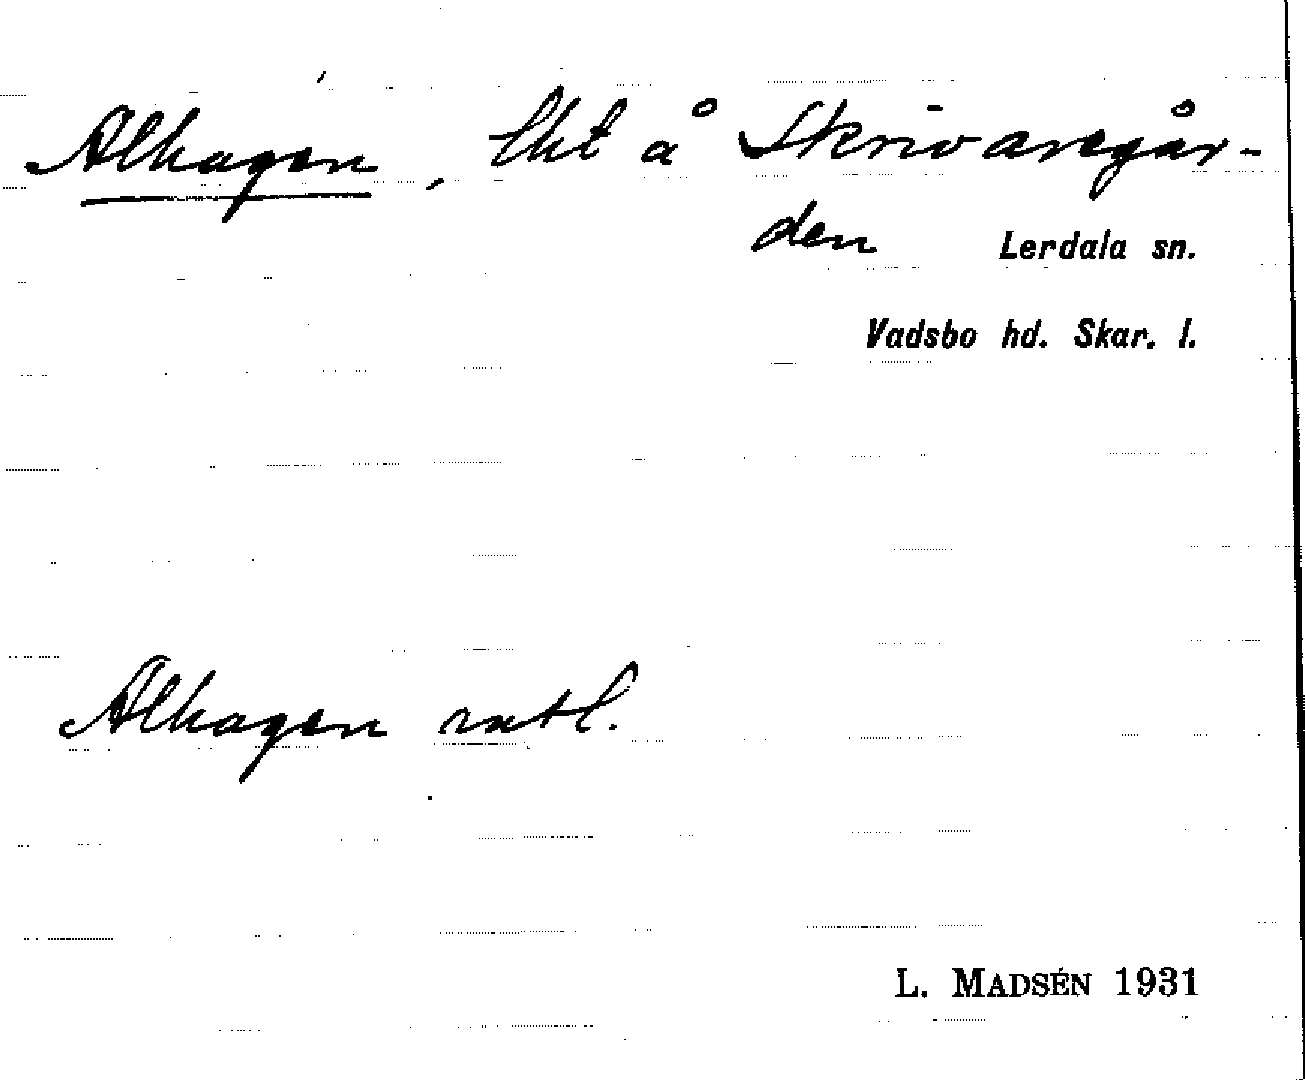 Alhagen, lht å Skrivaregår-
den
Lerdala sn.
Vadsbo hd. Skar. l.
Alhagen rxtl.
L. MADSÉN 1931